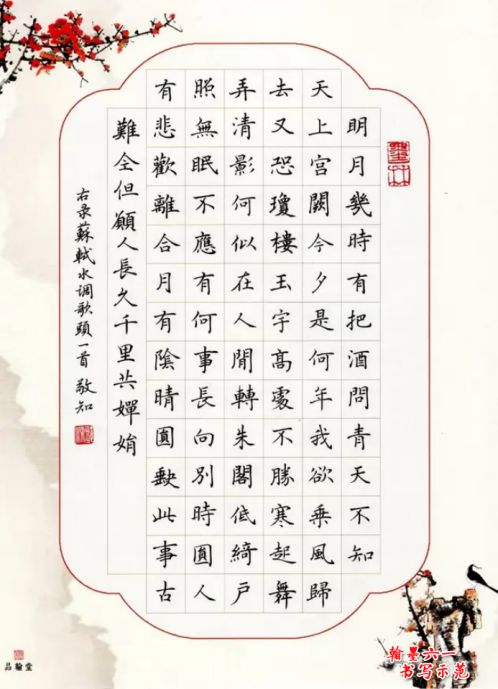 明月幾時有把酒問青天不知
天上宮闕今夕是何年我欲乘風歸
去又恐瓊樓玉宇高處不勝寒起舞
弄清影何似在人閒轉朱閣低綺戶
照無眠不應有何事長向別時圓人
有悲歡離合月有陰晴圓缺此事古
難全但願人長久千里共嬋娟
右录蘇軾水调歌頭一首 敬知
品翰堂
翰墨六一
书写示范